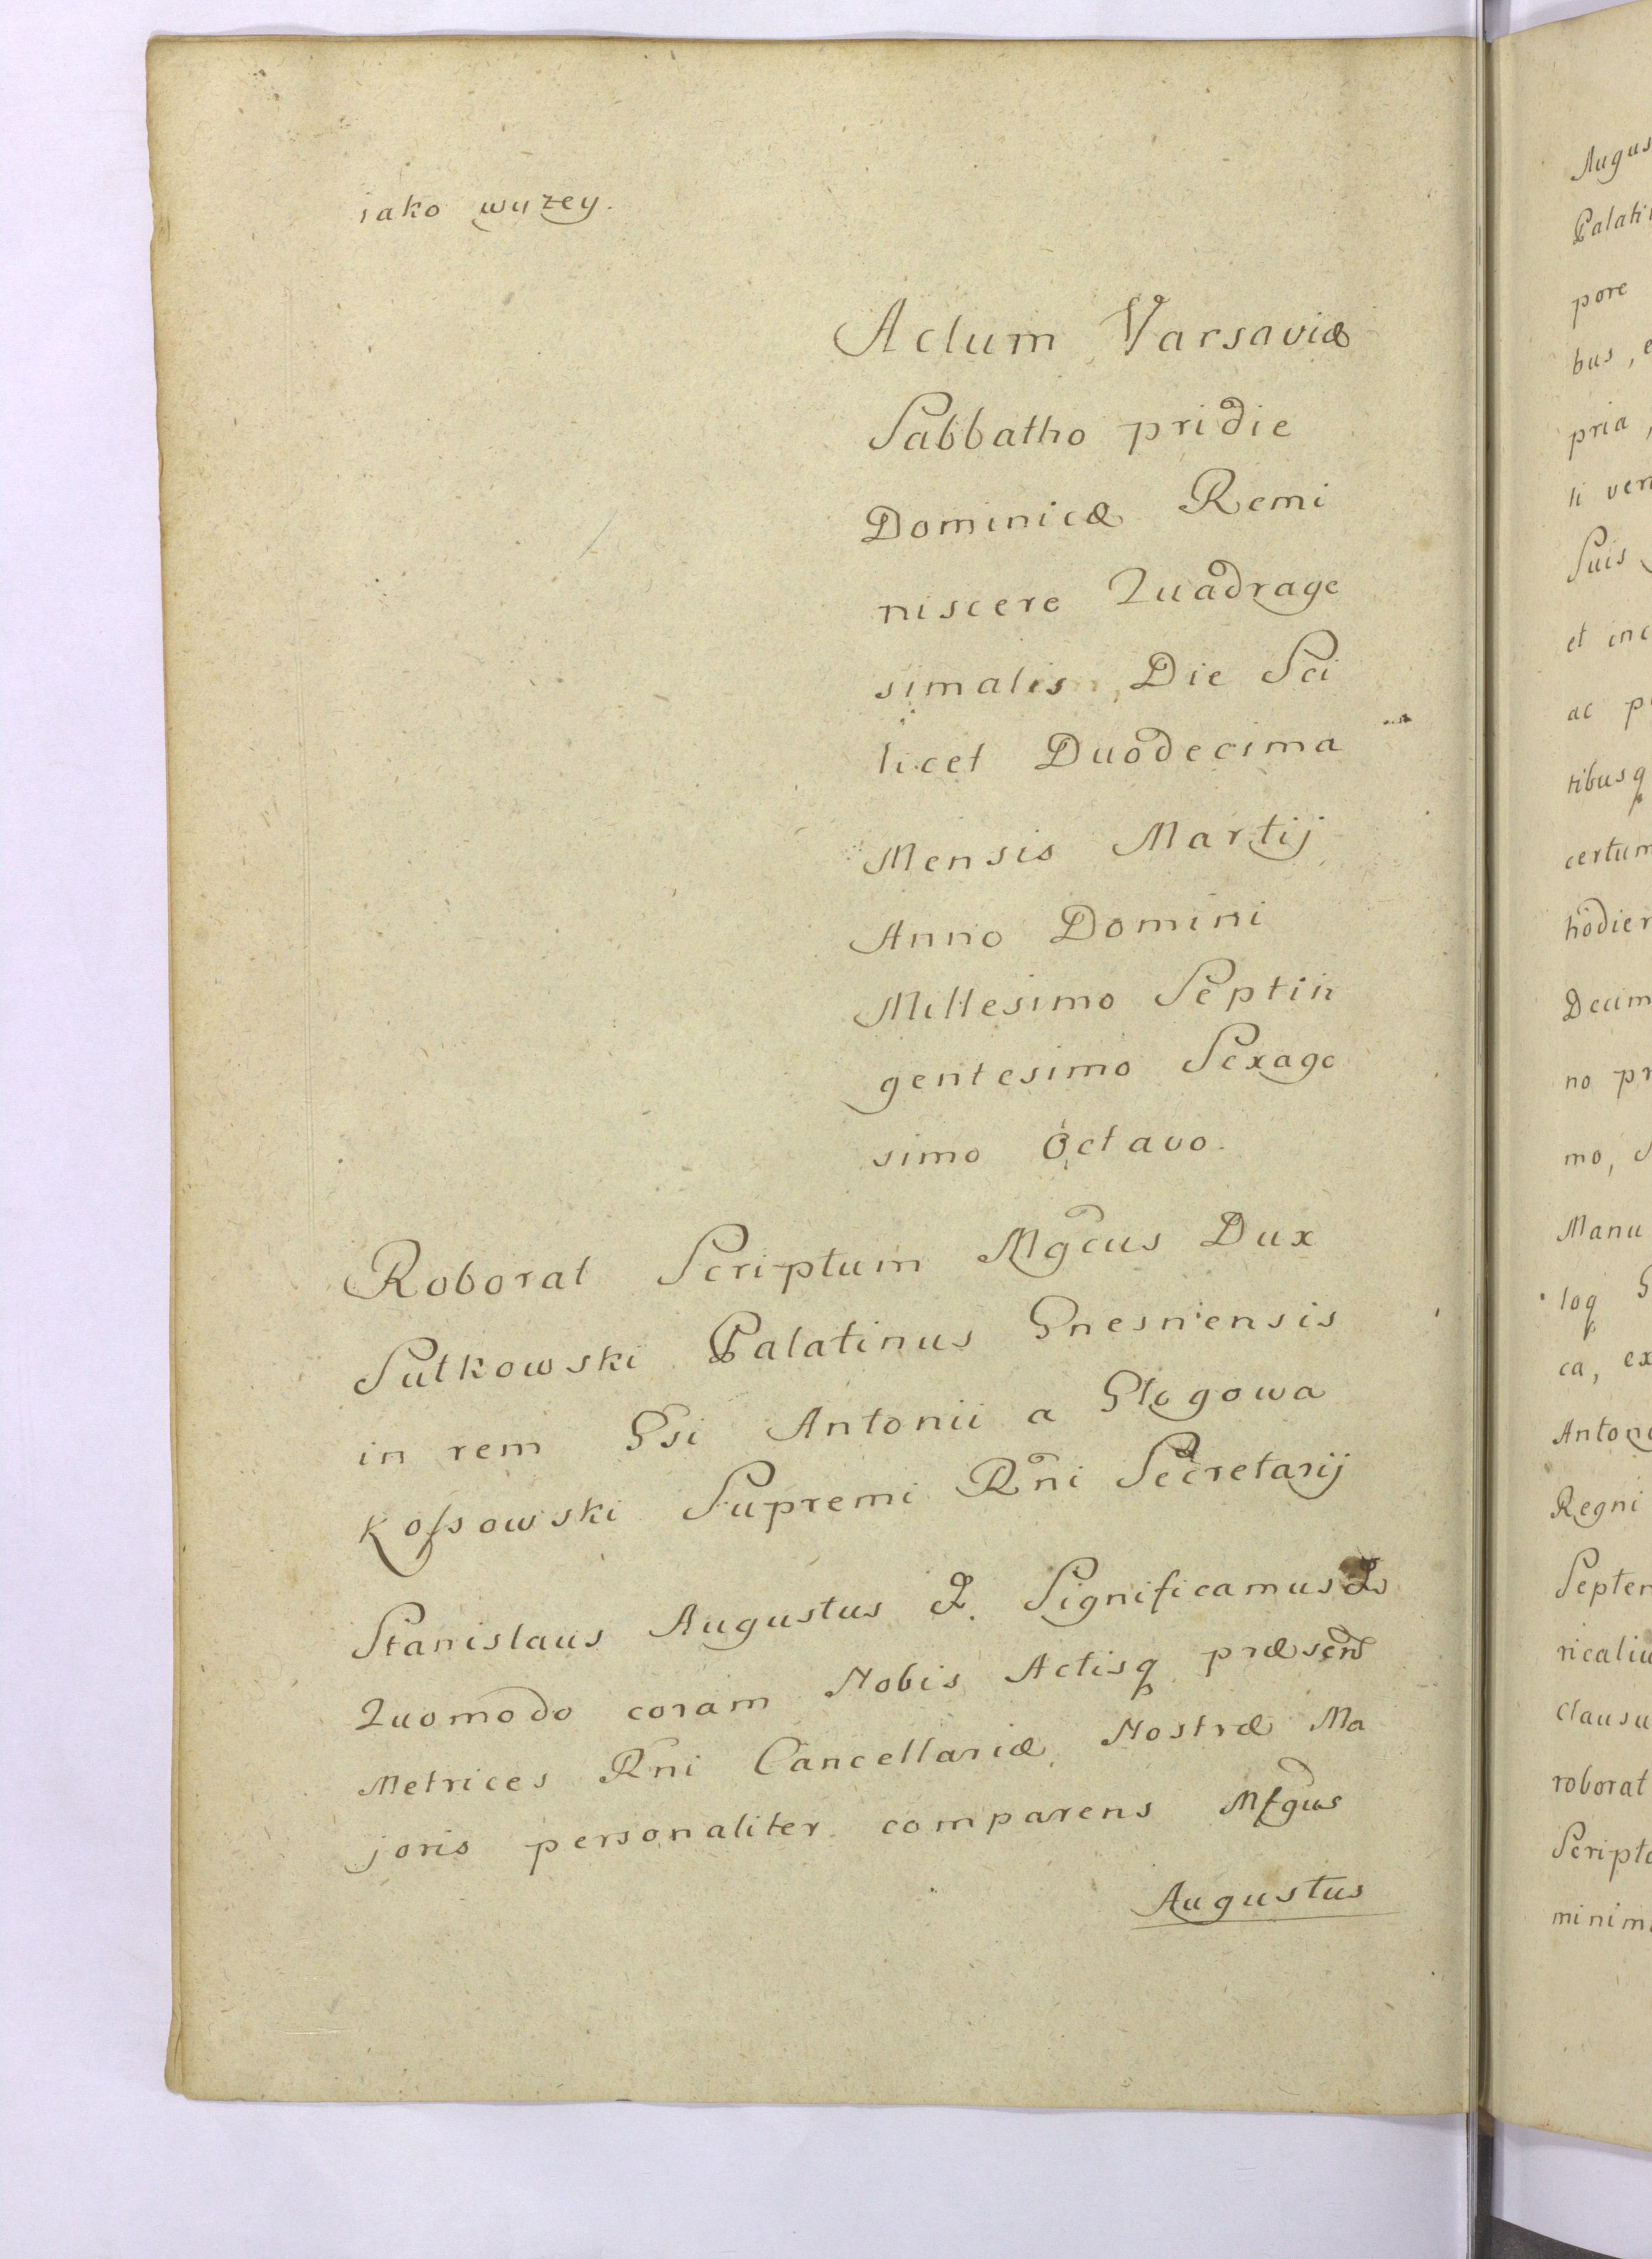 iako wyzey.
Actum Varsaviæ
Sabbatho pridie
Dominicæ Remi
niscere Quadrage
simalis, Die Sci
licet Duodecima
Mensis Martij
Anno Domini
Millesimo Septin
gentesimo Sexage
simo Octavo.
Roborat Scriptum Mgcus Dux
Sutkowski Palatinus Gnesnensis
in rem Gsi Antonii a Głogowa
Kossowski Supremi Rni Secretarij
Stanislaus Augustus &. Significamus &
Quomodo coram Nobis Actisq præsent
Metrices Rni Cancellariæ Nostræ Ma
joris personaliter comparens Mgcus
Augustus
Augus
Palati
pore
bus, e
pria,
ti ver
Suis
et inc
ac p
tibusq
certum
hodier
Decim
no pr
mo, S
Manu
loq G
ca, ex
Antoni
Regni
Septem
ricaliu
Clausu
roborat
Scripto
minim